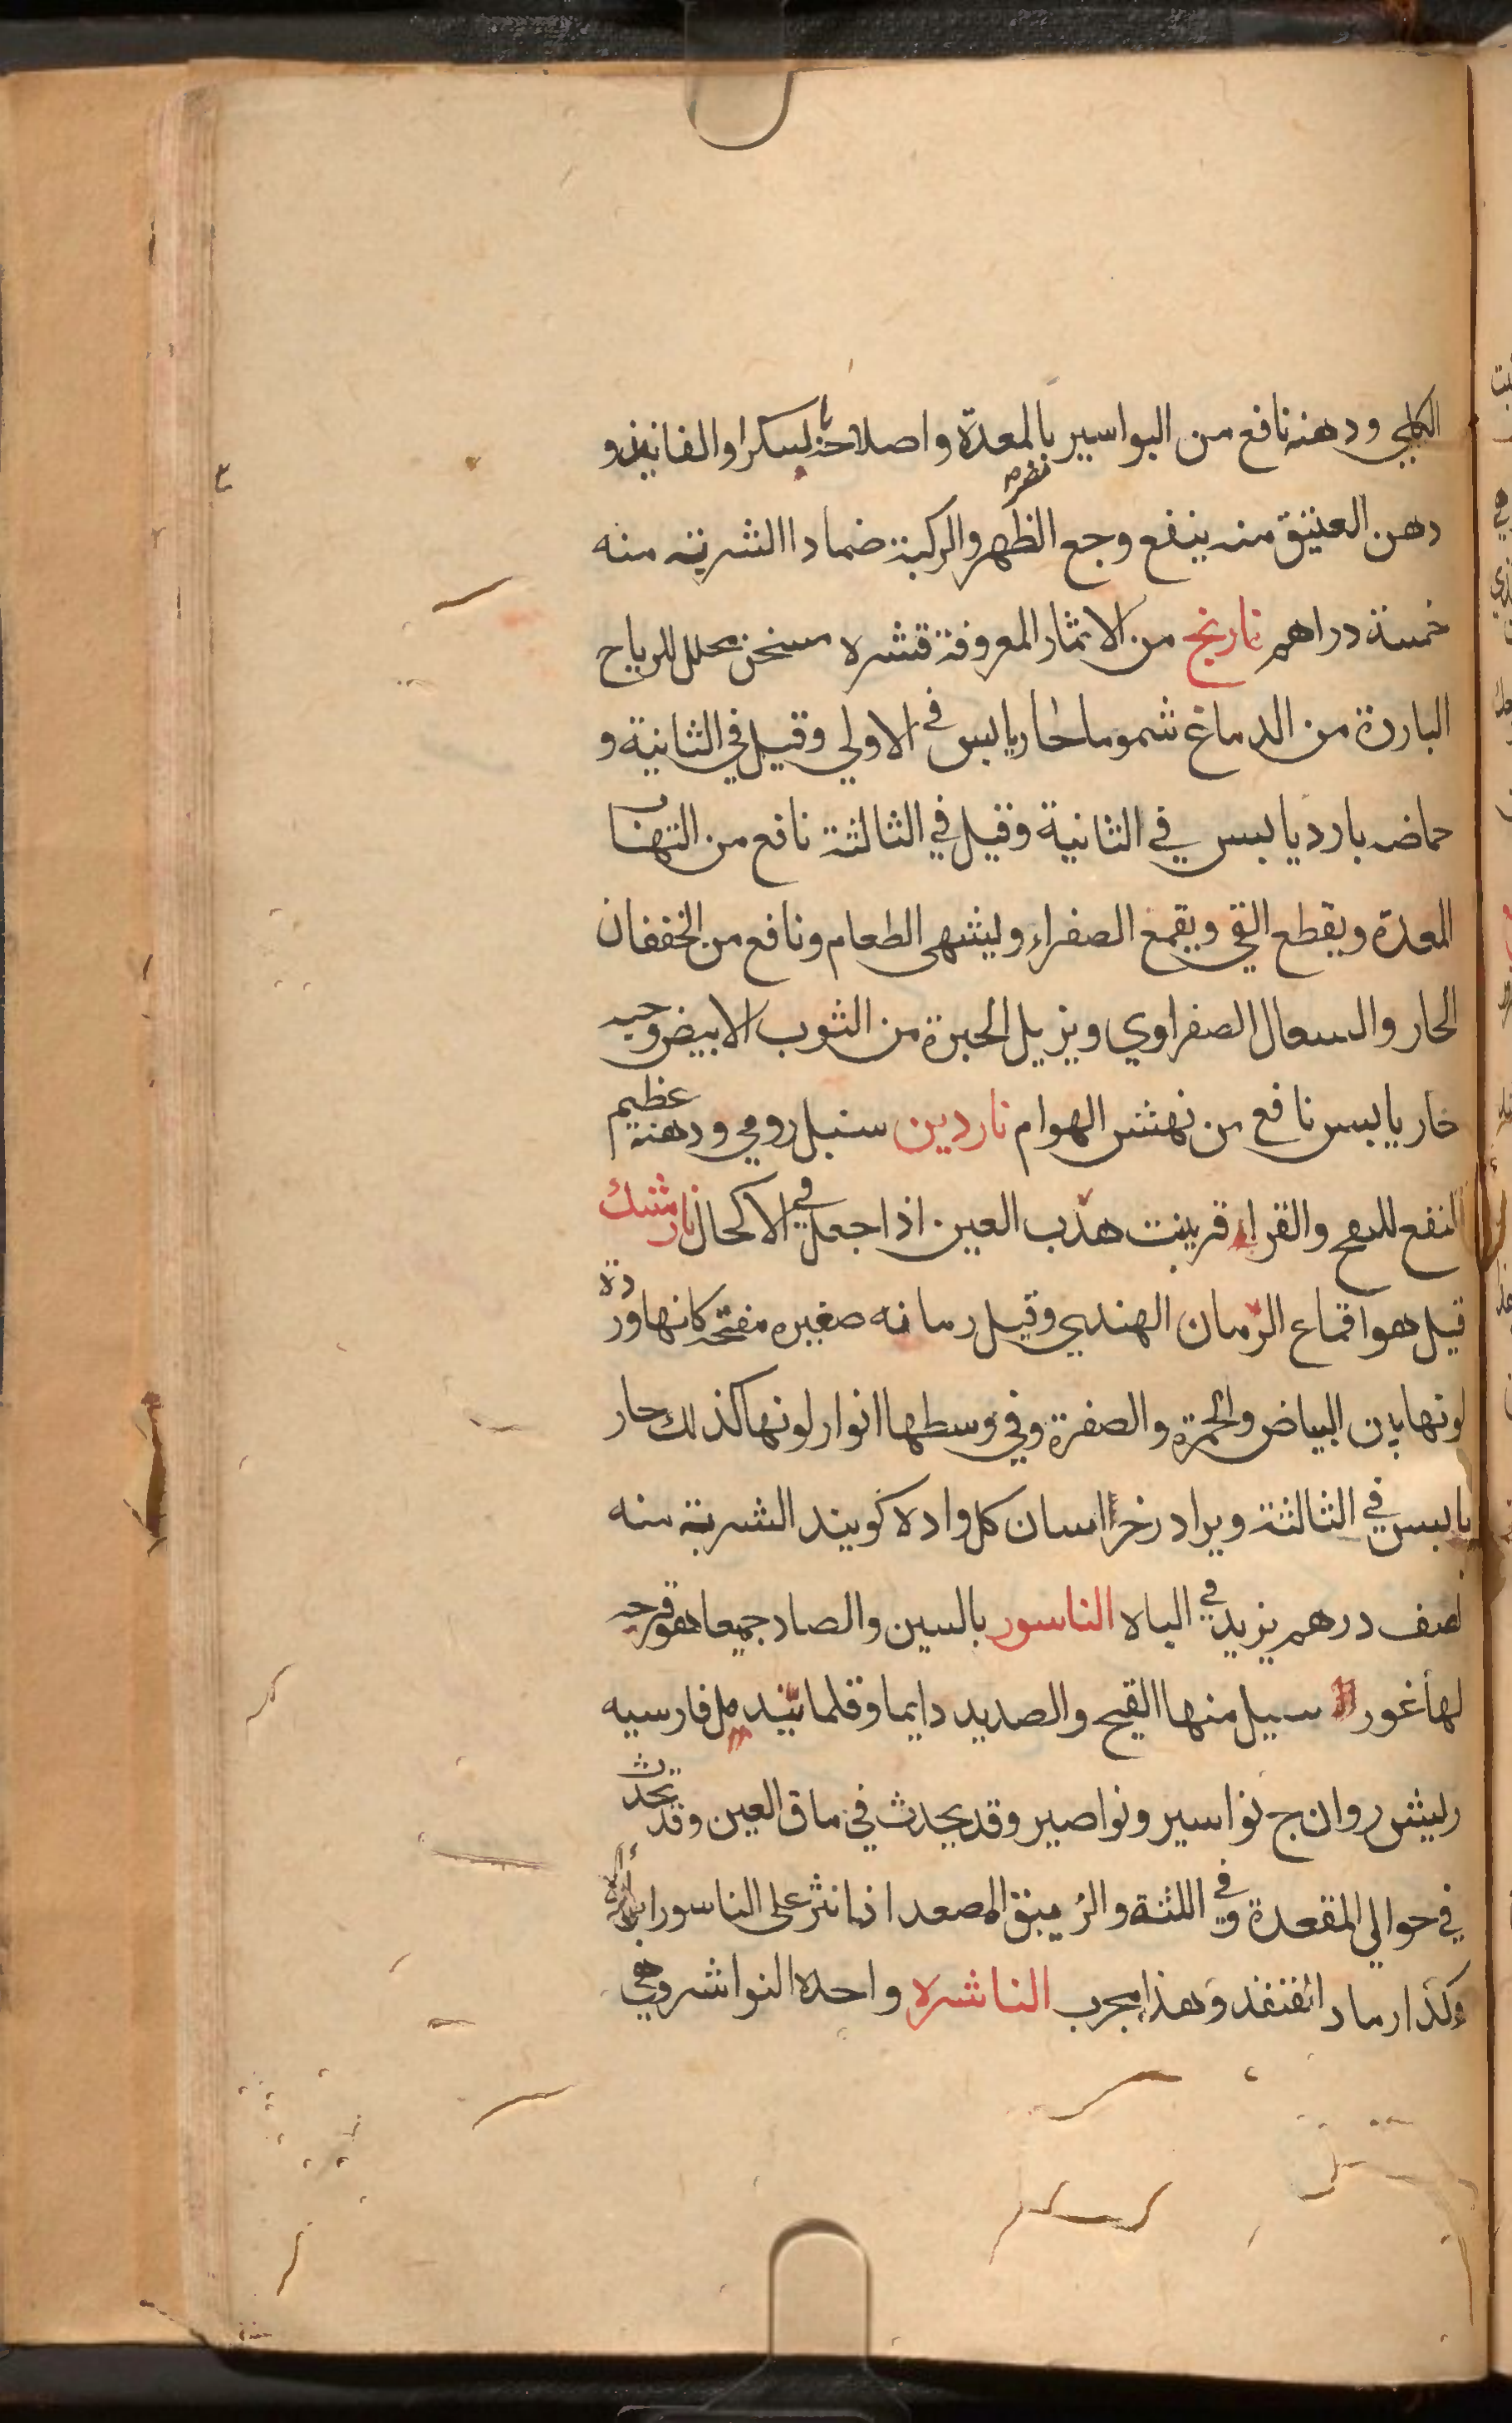 الكلي ودهنه نافع من البواسير مضره بالمعدة واصلاحه بالسكر او الفانيذ و
دهن العتيق منه ينفع وجع الظهر والركبة ضمادا الشربة منه
خمسة دراهم نارنج من الاثمار المعروفة قشره مسخن محلل للرياح
الباردة من الدماغ شموما حار يابس في الاولي وقيل في الثانية و
حماضه بارد يابس في الثانية وقيل في الثالثة نافع من التهاب
المعدة ويقطع القي ويقمع الصفراء ويشهي الطعام ونافع من الخفقان
الحار والسعال الصفراوي ويزيل الحبرة من الثوب الابيض وحبه
حار يابس نافع من نهش الهوام ناردين سنبل رومي ودهنه عظيم
النفع للدمع والقرا قرينبت هدب العين اذا جعل في الاكحال نارمشك
قيل هو اقماع الرمان الهندي وقيل رمانه صغيره مفتحه كانها وردة
لونها بين البياض والحمرة والصفرة وفي وسطها انوار لونها كذلك حار
يابس في الثالثة ويرا در خراسان كل واده كويند الشربة منه
نصف درهم يزيد في الباه الناسور بالسين والصاد جميعا هو قرحه
لها غور سيل منها القيح والصديد دايما وقلما يندمل فارسيه
ريش روان ج نواسير ونواصير وقد يحدث في ماق العين وقد تحدث
في حوالي المقعدة وفي اللثة والزيبق المصعد اذا نثر علي الناسور ابراه
وكذا رماد القنفذ وهذا مجرب الناشره واحده النواشر وهي